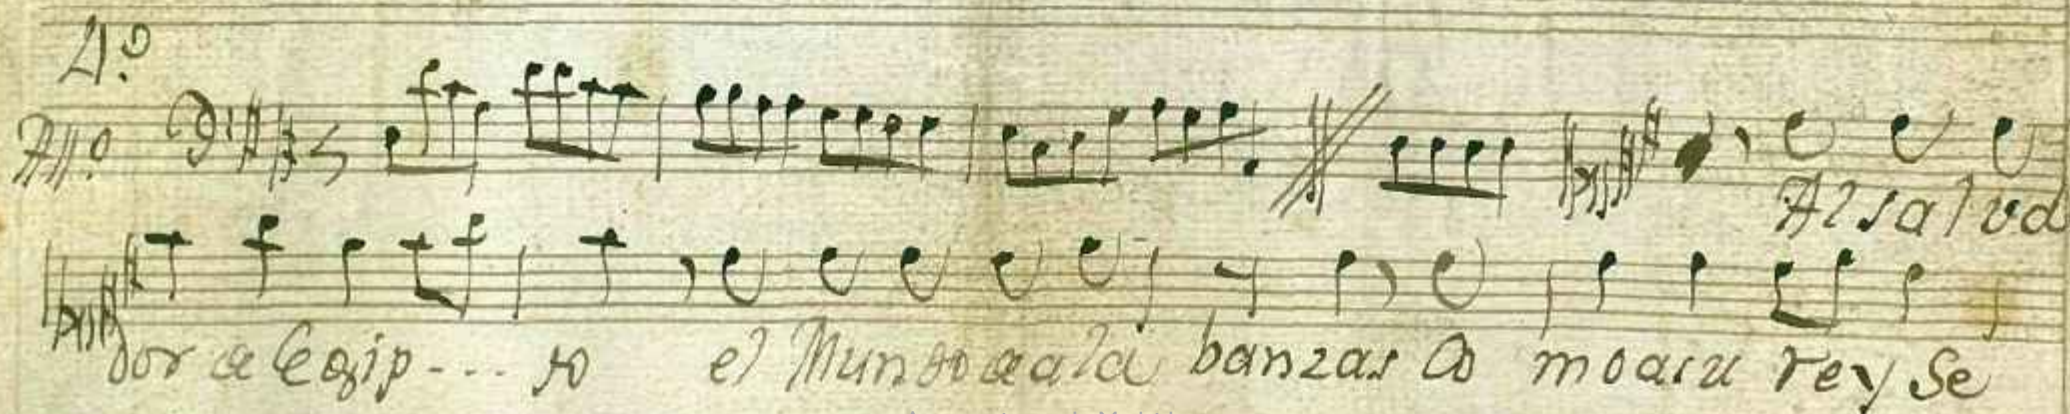 4.º
All.º
Al salva
dor de Egip---to el Mundo a ala banzas Co mo a su rey Se